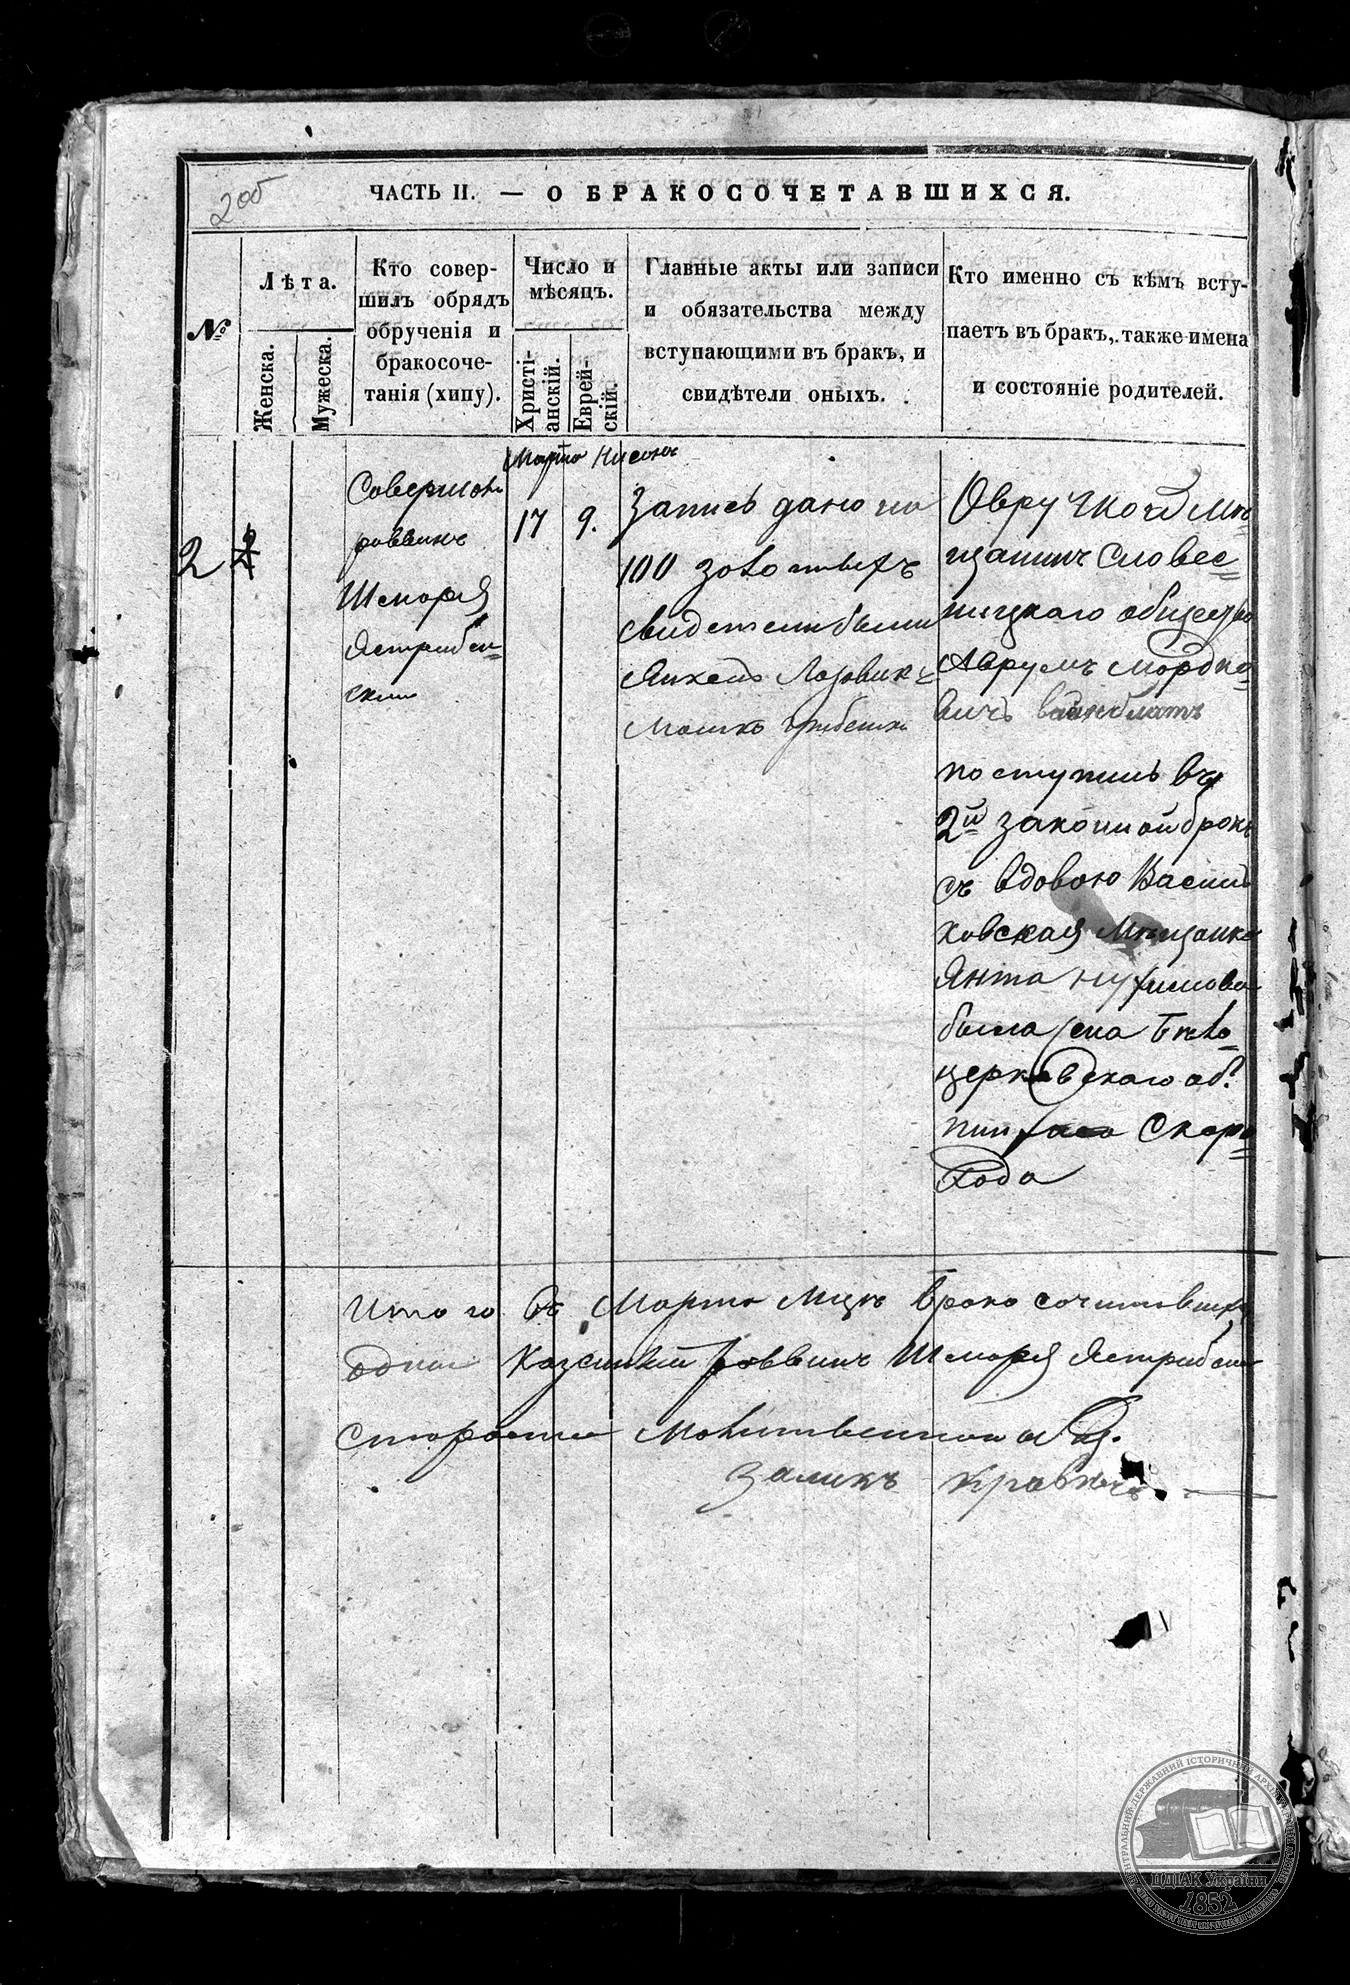 200
ЧАСТЬ II. — О БРАКОСОЧЕТАВШИХСЯ.
№
Лѣта.
Женска.
Мужеска.
Кто совер-
шилъ обрядъ
обрученія и
бракосоче-
танія (хипу).
Число и
мѣсяцъ.
Христі-
анскій.
Еврей-
скій.
Главные акты или записи
и обязательства между
вступающими въ бракъ, и
свидѣтели оныхъ.
Кто именно съ кѣмъ всту-
паетъ въ бракъ, также имена
и состояніе родителей.
2
Совершон
раввинъ
Шмарья
Ястребен-
ски
Марта
17
Нисонъ
9.
Запись дано на
100 золотыхъ
свидетели были
Янкель Лозовикъ
Мошко
Овручкочъ Мѣ
щанинъ Словес-
ницкаго общества
Аврумъ Мордко-
вичъ Вайнблатъ
поступилъ въ
2й законной бракъ
съ вдовою Василь
ковская Мѣщанка
Янта Нухимова
была Бѣло-
церковскаго об.
Скоро-
хода
Итого въ Марта Мцѣ брако сочитавших
одна Казенный раввинъ Шмарья Ястребен
Староста Молитвенной
Заликъ